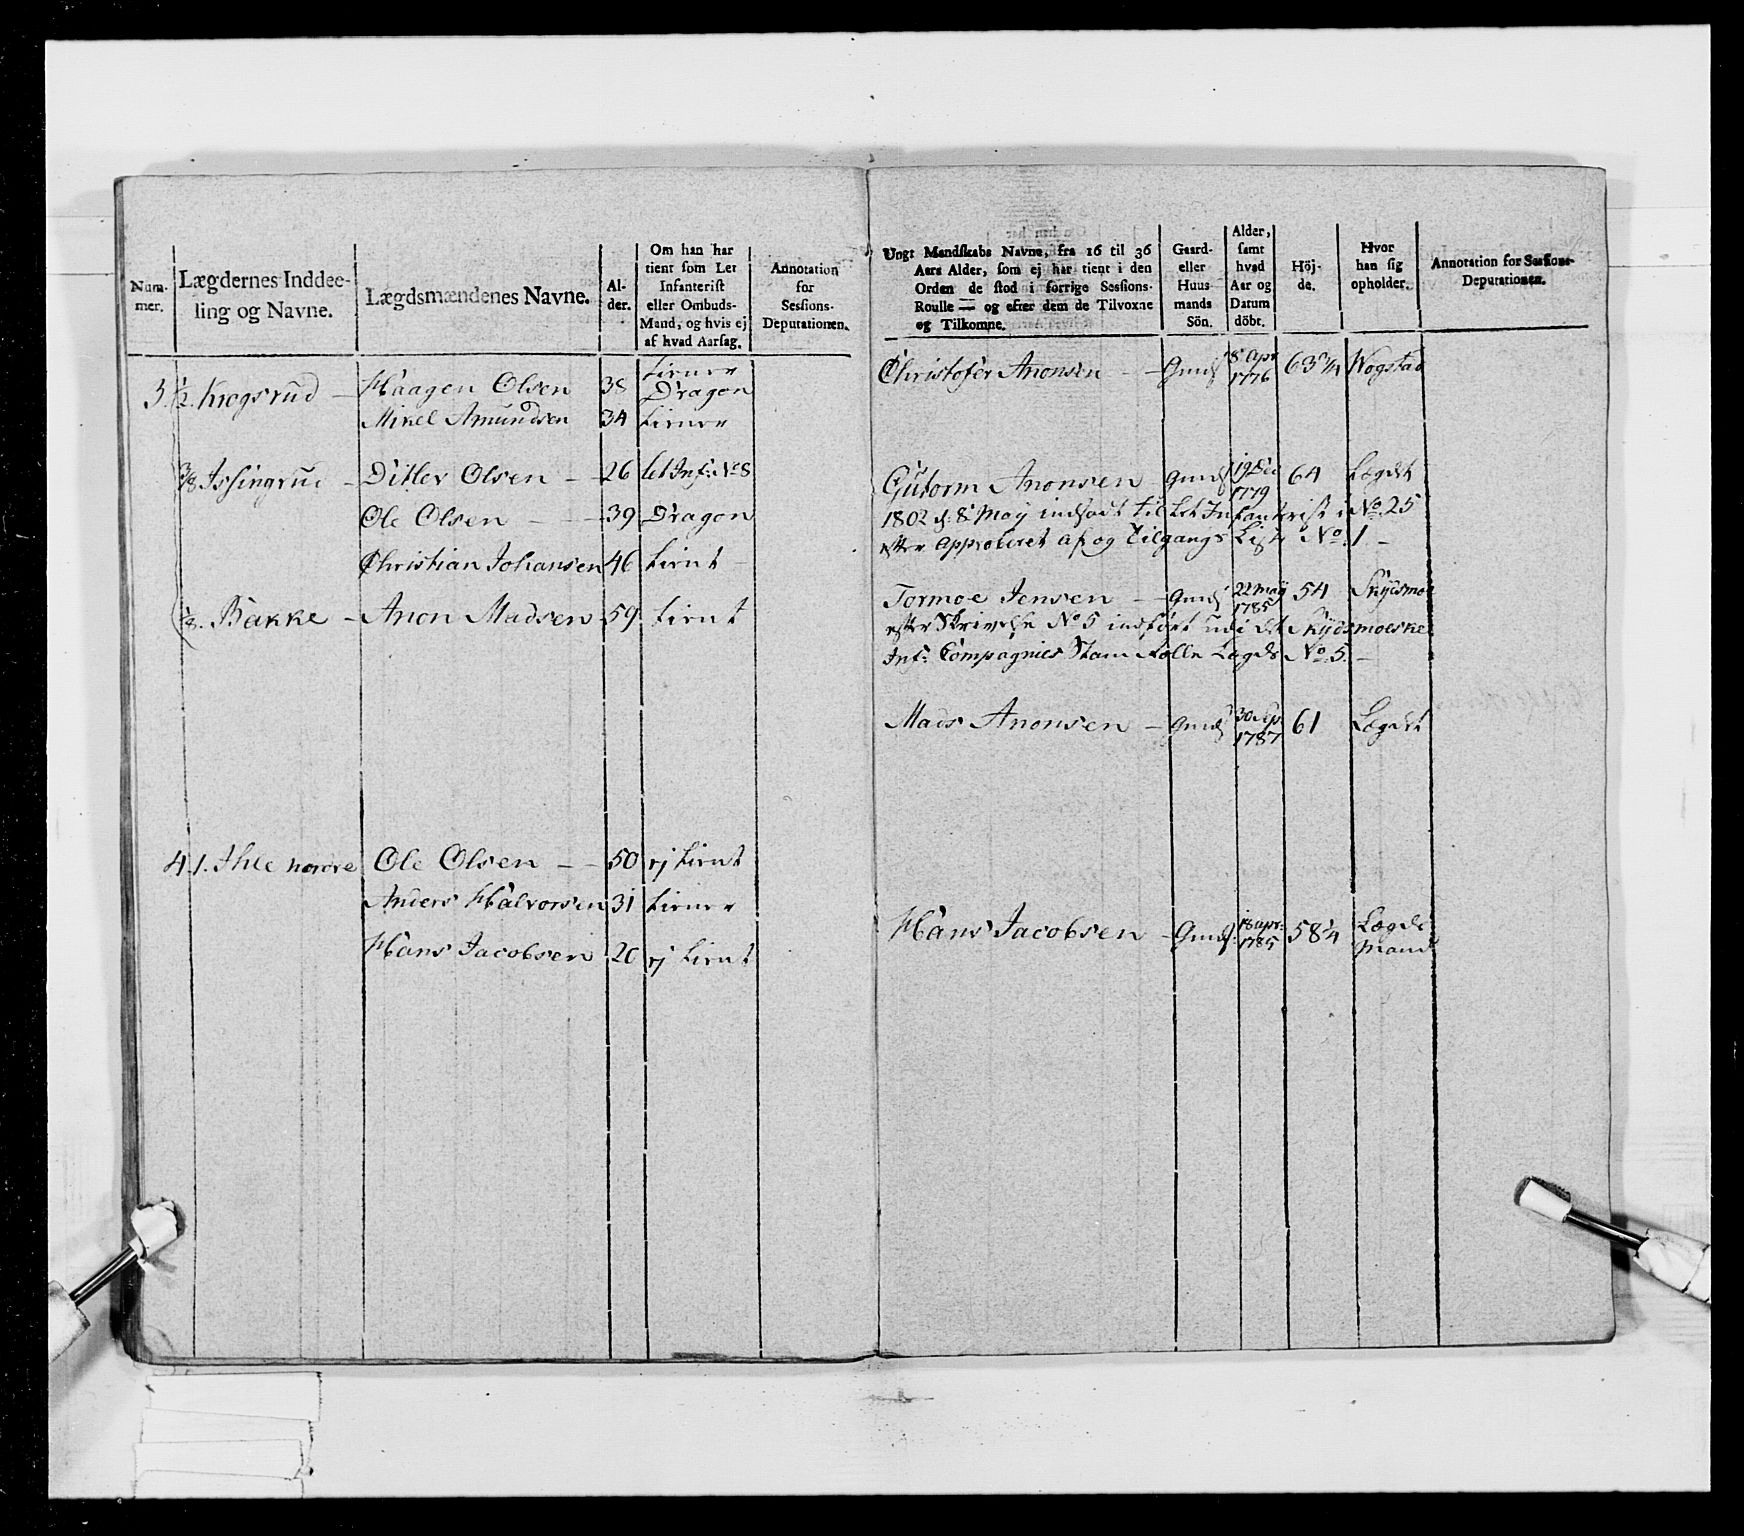 Num-
mer.
Lægdernes Inddee-
ling og Navne.
Lægdsmændenes Navne.
Al-
der.
Om han har
tient som Let
Infanterist
eller Ombuds-
Mand, og hvis ej
af hvad Aarsag.
Annotation
for
Sessions-
Deputationen.
3. ½. Krogsrud — Haagen Olsen 38 tienne
Dragon
Mikel Amundsen 34 tienne
3/8 Issingrud — Ditlev Olsen — 26 let Inf: No 8
Ole Olsen — 39 Dragon
Christian Johansen 46 tient —
1/8. Bakke — Anon Madsen 59 tient
4. 1. Ihle nordre Ole Olsen — 50 ej tient
Anders Halvorsen 31 tienne
Hans Jacobsen 20 ej tient
Ungt Mandskabs Navne, fra 16 til 36
Aars Alder, som ej har tient i den
Orden de stod i forrige Sessions-
Roulle — og efter dem de Tilvoxne
og Tilkomne.
Gaard-
eller
Huus-
mands
Sön.
Alder,
samt
hvad
Aar og
Datum
döbt.
Höj-
de.
Hvor
han sig
opholder.
Annotation for Sessions-
Deputationen.
Christofer Anonsen — Gmds 8 Apr
1776 63 ¾ Wogstad
Gutorm Anonsen — Gmds 19 Dec
1779 64 Lægdet
1802 d: 8 May indsadt til Let Infanterist i No. 25
efter Approberet af og Tilgangs List No. 1 —
Tormoe Jensen — Gmds 22 May
1785 54 Skydsmoe
efter Skrivelse No 5 indført udi det Skydsmoeske
Inf: Compagnies Stam Rolle Lægds No. 5. —
Mads Anonsen — Gmds 30
1787 61 Lægdet
Hans Jacobsen — Gmds: 18 Apr:
1785 58 ¼ Lægds
Mand